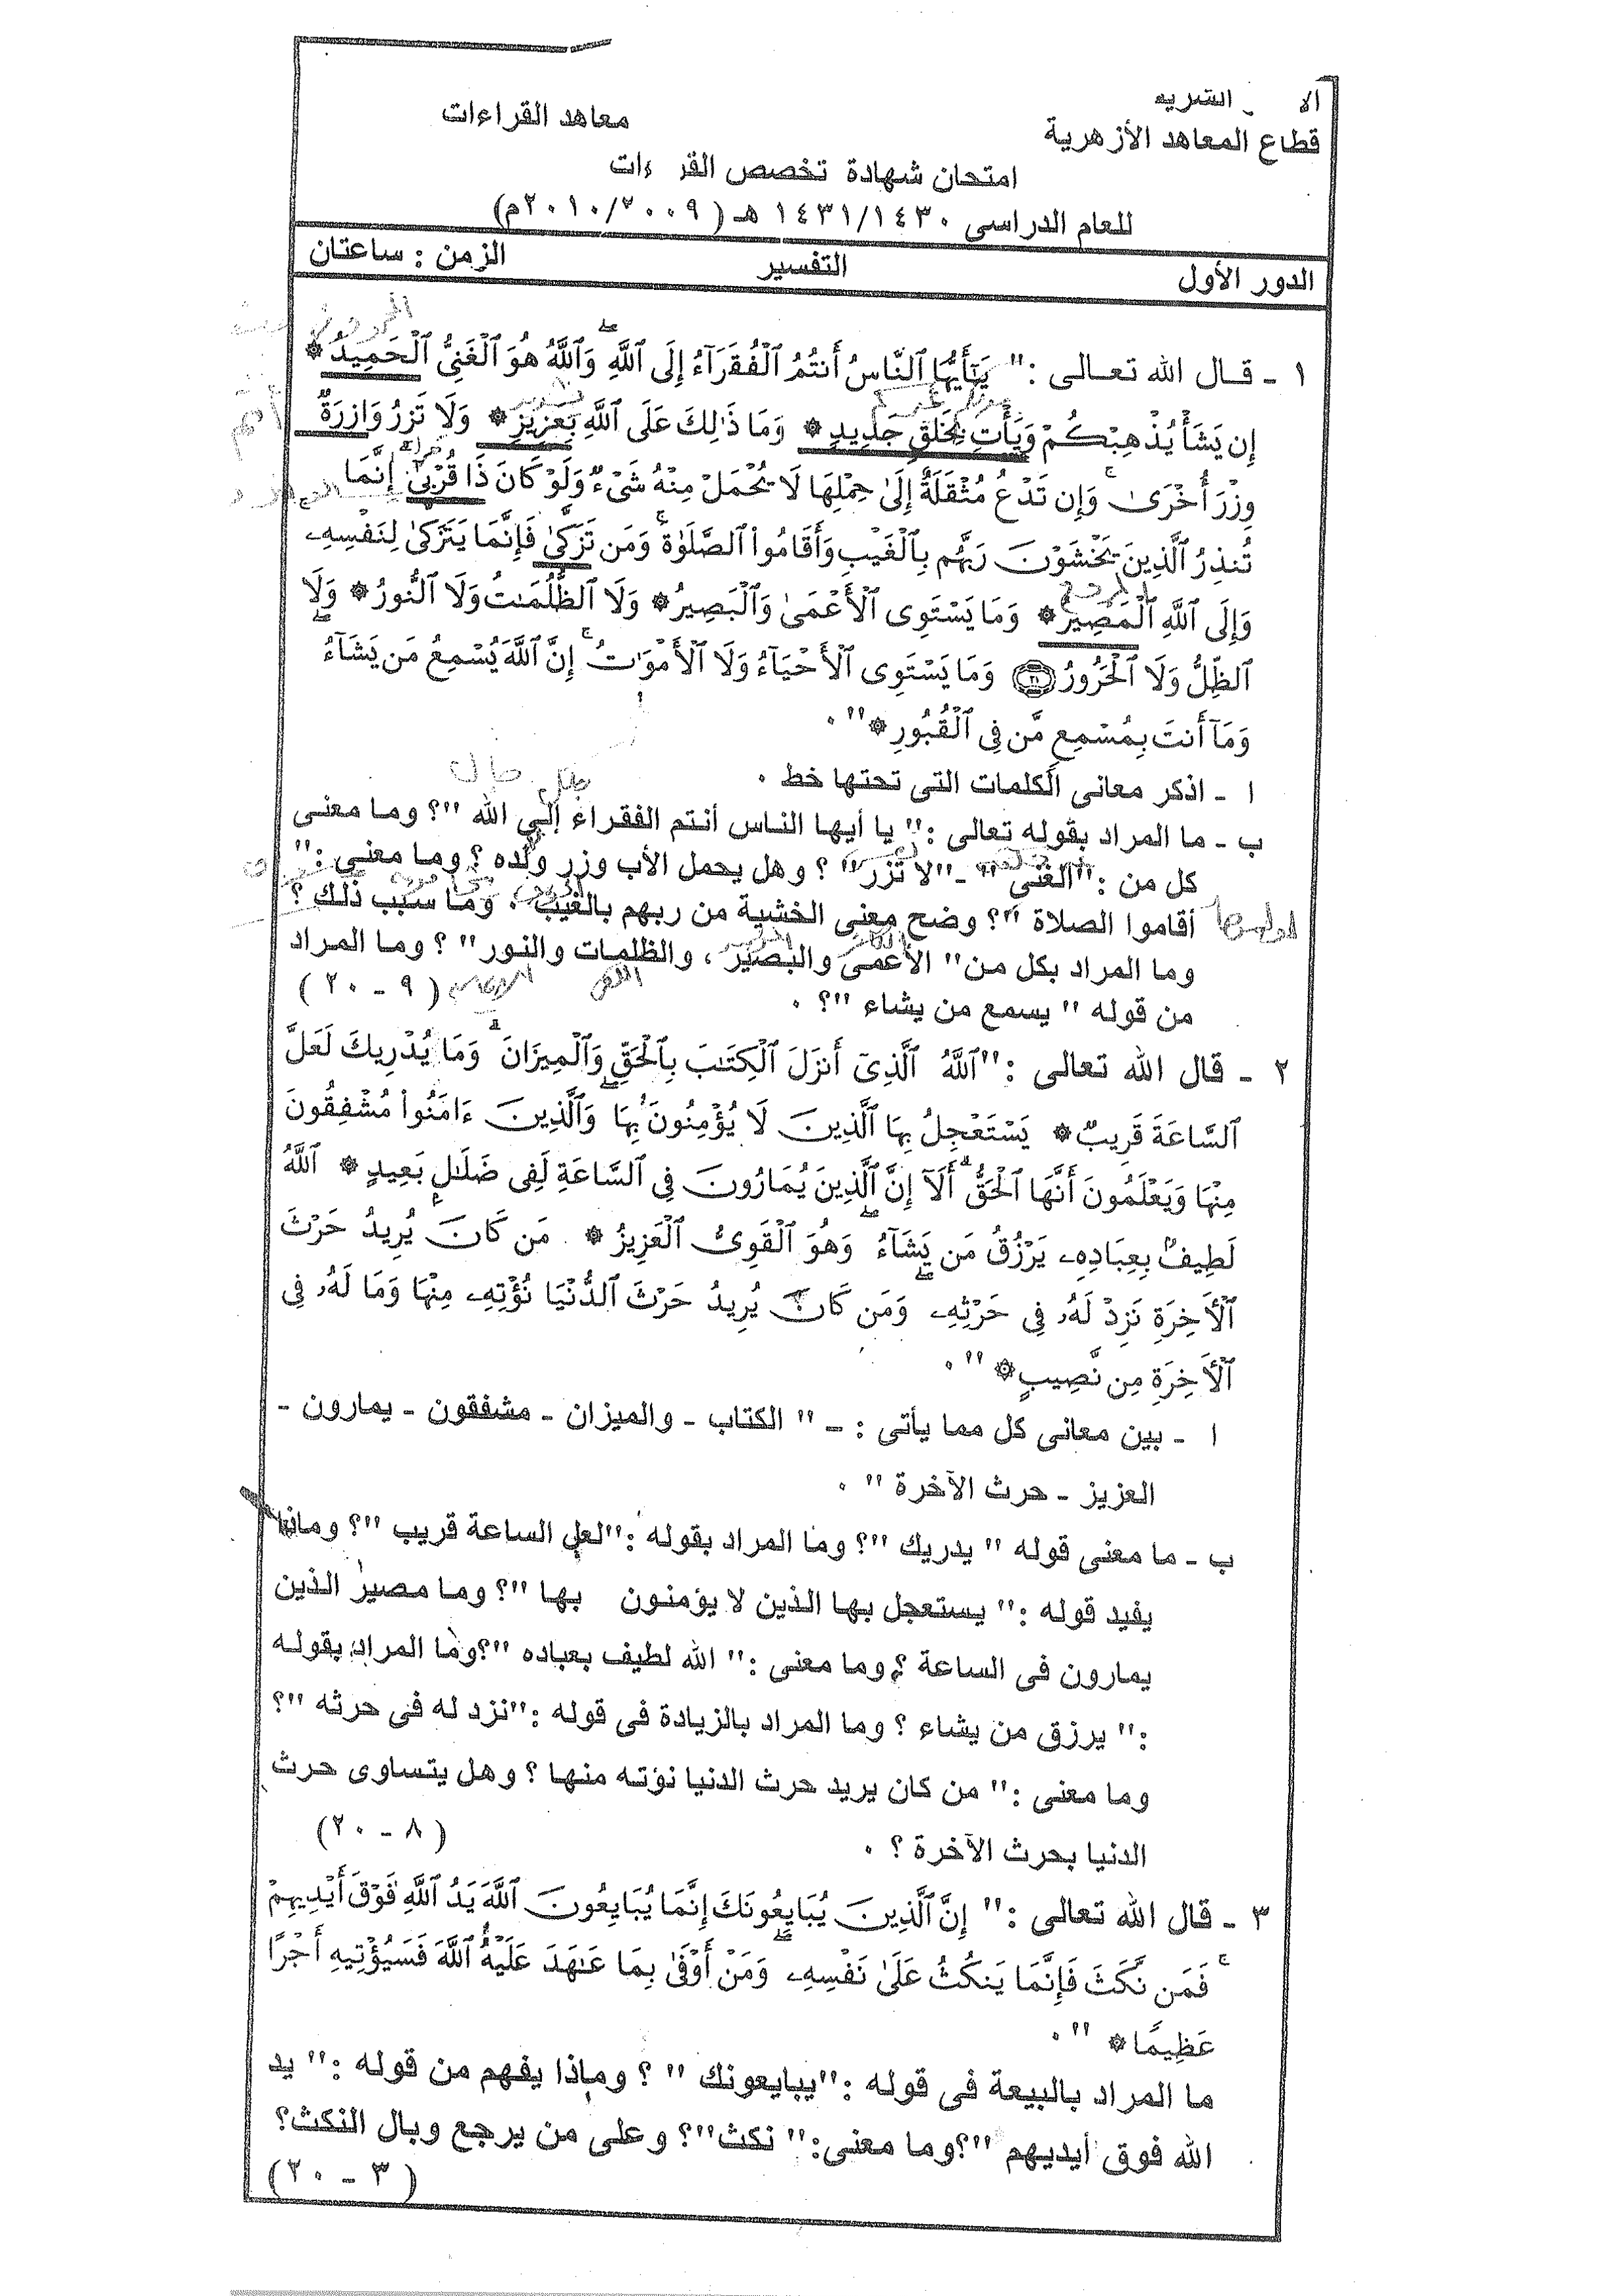 الشريف
قطاع المعاهد الأزهرية
معاهد القراءات
امتحان شهادة تخصص القراءات
للعام الدراسى ١٤٣١/١٤٣٠ هـ (٢٠١٠/٢٠٠٩م)
الدور الأول التفسير الزمن : ساعتان
١ - قـال الله تعـالى :" يَٰٓأَيُّهَا ٱلنَّاسُ أَنتُمُ ٱلْفُقَرَآءُ إِلَى ٱللَّهِ ۖ وَٱللَّهُ هُوَ ٱلْغَنِىُّ ٱلْحَمِيدُ *
إِن يَشَأْ يُذْهِبْكُمْ وَيَأْتِ بِخَلْقٍ جَدِيدٍ * وَمَا ذَٰلِكَ عَلَى ٱللَّهِ بِعَزِيزٍ * وَلَا تَزِرُ وَازِرَةٌ
وِزْرَ أُخْرَىٰ ۚ وَإِن تَدْعُ مُثْقَلَةٌ إِلَىٰ حِمْلِهَا لَا يُحْمَلْ مِنْهُ شَىْءٌ وَلَوْ كَانَ ذَا قُرْبَىٰٓ ۗ إِنَّمَا
تُنذِرُ ٱلَّذِينَ يَخْشَوْنَ رَبَّهُم بِٱلْغَيْبِ وَأَقَامُوا۟ ٱلصَّلَوٰةَ ۚ وَمَن تَزَكَّىٰ فَإِنَّمَا يَتَزَكَّىٰ لِنَفْسِهِۦ
وَإِلَى ٱللَّهِ ٱلْمَصِيرُ * وَمَا يَسْتَوِى ٱلْأَعْمَىٰ وَٱلْبَصِيرُ * وَلَا ٱلظُّلُمَٰتُ وَلَا ٱلنُّورُ * وَلَا
ٱلظِّلُّ وَلَا ٱلْحَرُورُ ٢١ وَمَا يَسْتَوِى ٱلْأَحْيَآءُ وَلَا ٱلْأَمْوَٰتُ ۚ إِنَّ ٱللَّهَ يُسْمِعُ مَن يَشَآءُ ۖ
وَمَآ أَنتَ بِمُسْمِعٍ مَّن فِى ٱلْقُبُورِ * " .
ا - اذكر معانى الكلمات التى تحتها خط .
ب - ما المراد بقوله تعالى :" يا أيها الناس أنتم الفقراء إلى الله "؟ وما معنى
كل من :"الغنى" -"لا تزر" ؟ وهل يحمل الأب وزر ولده ؟ وما معنى :"
أقاموا الصلاة "؟ وضح معنى الخشية من ربهم بالغيب . وما سبب ذلك ؟
وما المراد بكل من" الأعمى والبصير ، والظلمات والنور" ؟ وما المراد
من قوله " يسمع من يشاء "؟ . (٩ - ٢٠)
٢ - قال الله تعالى :"ٱللَّهُ ٱلَّذِىٓ أَنزَلَ ٱلْكِتَٰبَ بِٱلْحَقِّ وَٱلْمِيزَانَ ۗ وَمَا يُدْرِيكَ لَعَلَّ
ٱلسَّاعَةَ قَرِيبٌ * يَسْتَعْجِلُ بِهَا ٱلَّذِينَ لَا يُؤْمِنُونَ بِهَا ۖ وَٱلَّذِينَ ءَامَنُوا۟ مُشْفِقُونَ
مِنْهَا وَيَعْلَمُونَ أَنَّهَا ٱلْحَقُّ ۗ أَلَآ إِنَّ ٱلَّذِينَ يُمَارُونَ فِى ٱلسَّاعَةِ لَفِى ضَلَٰلٍۭ بَعِيدٍ * ٱللَّهُ
لَطِيفٌۢ بِعِبَادِهِۦ يَرْزُقُ مَن يَشَآءُ ۖ وَهُوَ ٱلْقَوِىُّ ٱلْعَزِيزُ * مَن كَانَ يُرِيدُ حَرْثَ
ٱلْأَخِرَةِ نَزِدْ لَهُۥ فِى حَرْثِهِۦ ۖ وَمَن كَانَ يُرِيدُ حَرْثَ ٱلدُّنْيَا نُؤْتِهِۦ مِنْهَا وَمَا لَهُۥ فِى
ٱلْأَخِرَةِ مِن نَّصِيبٍ * " .
ا - بين معانى كل مما يأتى : - " الكتاب - والميزان - مشفقون - يمارون -
العزيز - حرث الآخرة " .
ب - ما معنى قوله " يدريك "؟ وما المراد بقوله :"لعل الساعة قريب "؟ وماذا
يفيد قوله :" يستعجل بها الذين لا يؤمنون بها "؟ وما مصير الذين
يمارون فى الساعة ؟ وما معنى :" الله لطيف بعباده "؟وما المراد بقوله
:" يرزق من يشاء ؟ وما المراد بالزيادة فى قوله :"نزد له فى حرثه "؟
وما معنى :" من كان يريد حرث الدنيا نؤته منها ؟ وهل يتساوى حرث
الدنيا بحرث الآخرة ؟ . (٨ - ٢٠)
٣ - قال الله تعالى :" إِنَّ ٱلَّذِينَ يُبَايِعُونَكَ إِنَّمَا يُبَايِعُونَ ٱللَّهَ يَدُ ٱللَّهِ فَوْقَ أَيْدِيهِمْ
ۚ فَمَن نَّكَثَ فَإِنَّمَا يَنكُثُ عَلَىٰ نَفْسِهِۦ ۖ وَمَنْ أَوْفَىٰ بِمَا عَٰهَدَ عَلَيْهُ ٱللَّهَ فَسَيُؤْتِيهِ أَجْرًا
عَظِيمًا * " .
ما المراد بالبيعة فى قوله :"يبايعونك " ؟ وماذا يفهم من قوله :" يد
الله فوق أيديهم "؟وما معنى:" نكث"؟ وعلى من يرجع وبال النكث؟
(٣ - ٢٠)